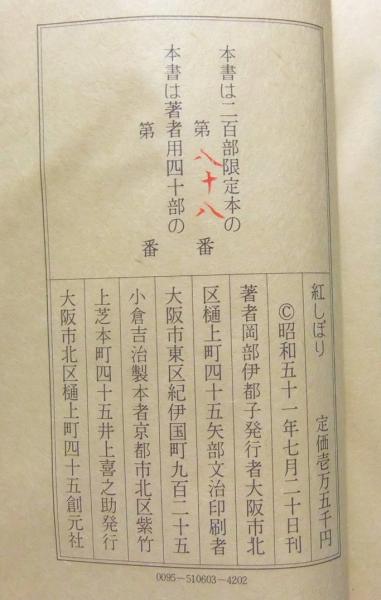 本書は二百部限定本の
第 八十八 番
本書は著者用四十部の
第 番
紅しぼり 定価壱万五千円
©昭和五十一年七月二十日刊
著者岡部伊都子発行者大阪市北
区樋上町四十五矢部文治印刷者
大阪市東区紀伊国町九百二十五
小倉吉治製本者京都市北区紫竹
上芝本町四十五井上喜之助発行
大阪市北区樋上町四十五創元社
0095-510603-4202